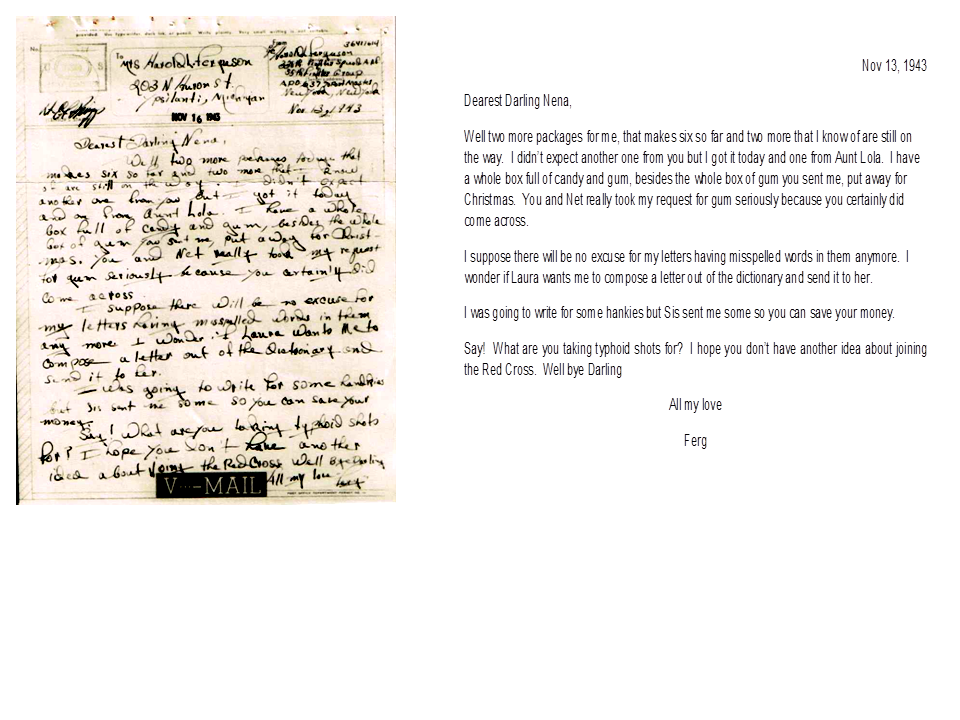 provided. Use typewriter, dark ink, or pencil. Write plainly. Very small writing is not suitable.
No.
To
Mrs Harold Ferguson
203 N Huron St.
Ypsilanti, Michigan
NOV 16 1943
From
Harold Ferguson
35th Fighter Group
New York, New York
Nov 13, 1943
Dearest Darling Nena,
Well, two more packages for me that
makes six so far and two more that I know
of are still on the way. I didn't expect
another one from you but I got it today
and one from Aunt Lola. I have a whole
box full of candy and gum, besides the whole
box of gum you sent me, put away for Christ-
mas. You and Net really took my request
for gum seriously because you certainly did
come across.
I suppose there will be no excuse for
my letters having misspelled words in them
any more. I wonder if Laura wants me to
compose a letter out of the dictionary and
send it to her.
I was going to write for some hankies
but Sis sent me some so you can save your
money.
Say! What are you taking typhoid shots
for? I hope you don't have another
idea about joing the Red Cross. Well Bye Darling
All my love
Ferg
V···—MAIL
Nov 13, 1943
Dearest Darling Nena,
Well two more packages for me, that makes six so far and two more that I know of are still on
the way. I didn't expect another one from you but I got it today and one from Aunt Lola. I have
a whole box full of candy and gum, besides the whole box of gum you sent me, put away for
Christmas. You and Net really took my request for gum seriously because you certainly did
come across.
I suppose there will be no excuse for my letters having misspelled words in them anymore. I
wonder if Laura wants me to compose a letter out of the dictionary and send it to her.
I was going to write for some hankies but Sis sent me some so you can save your money.
Say! What are you taking typhoid shots for? I hope you don't have another idea about joining
the Red Cross. Well bye Darling
All my love
Ferg